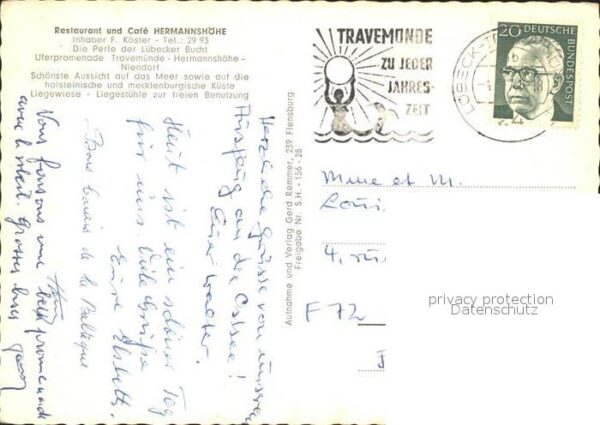 Restaurant und Café HERMANNSHÖHE
Inhaber F. Köster - Tel.: 29 93
Die Perle der Lübecker Bucht
Uferpromenade Travemünde - Hermannshöhe -
Niendorf
Schönste Aussicht auf das Meer sowie auf die
holsteinische und mecklenburgische Küste
Liegewiese - Liegestühle zur freien Benutzung
TRAVEMÜNDE
ZU JEDER
JAHRES-
ZEIT
LÜBECK-
20
DEUTSCHE
BUNDESPOST
Herzliche Grüsse von unserem
Ausflug an die Ostsee!
Euer Walter.
Heut ist ein schöner Tag
für uns. Viele Grüße
Eure Elsbeth.
Bons baisers de la Baltique
Nous faisons une belle promenade
avec le soleil. Grosses bises
Aufnahme und Verlag Gerd Remmer, 239 Flensburg
Freigabe Nr. S.H. - 156 - 28
Mme et M.
Loui
4, rue
F 72
privacy protection
Datenschutz